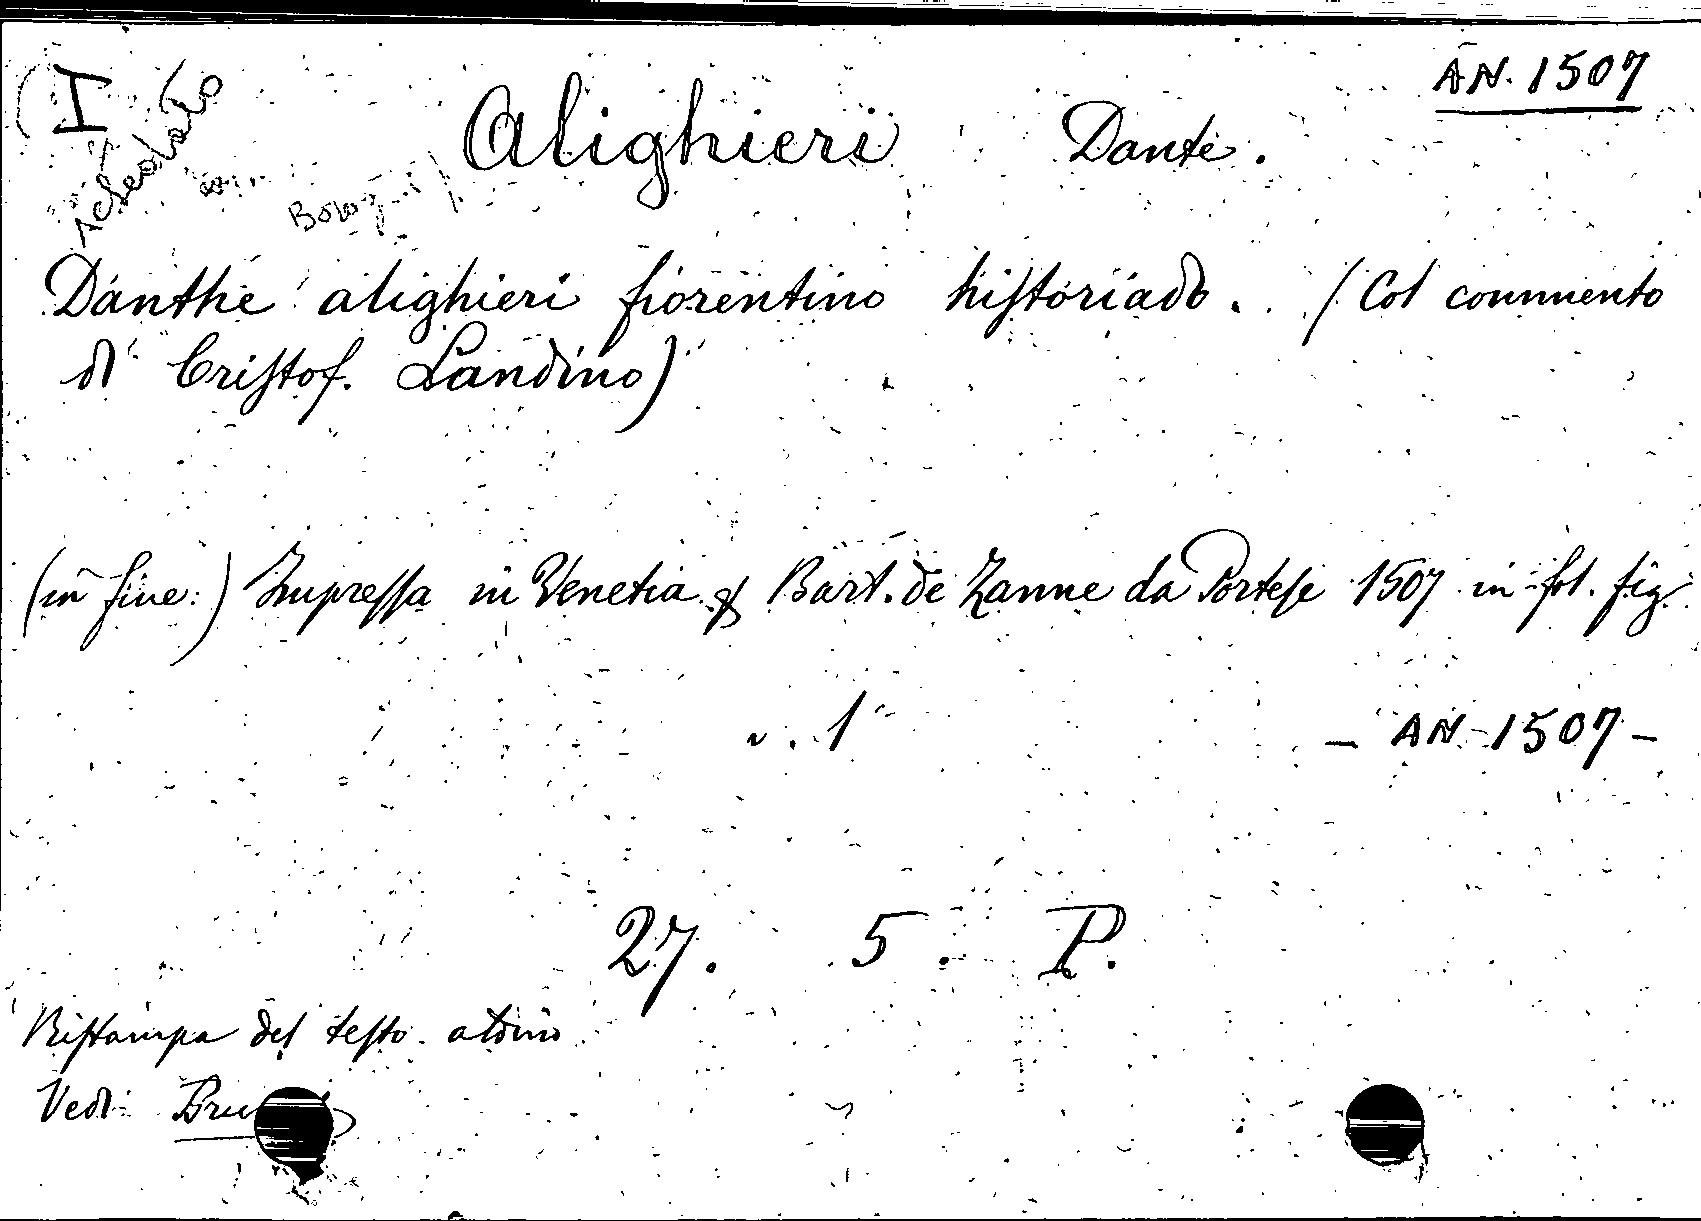 I
AN. 1507
schedato
Alighieri Dante.
Danthe alighieri fiorentino historiado. (Col commento
di Cristof. Landino)
(in fine:) Impressa in Venetia ꝑ Bart. de Zanne da Portese 1507 in fol. fig.
v. 1
- AN 1507 -
27. 5. P.
Ristampa del testo aldino
Vedi